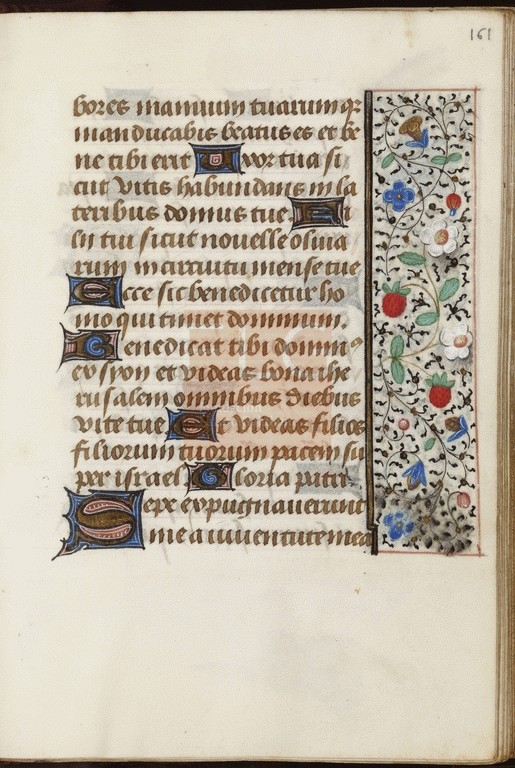 161
bores manuum tuarum qz
manducabis beatus es et be
ne tibi erit Uxor tua si
cut vitis habundans in la
teribus domus tue. Fi
lii tui sicut novelle oliva
rum in circuitu mense tue
Ecce sic benedicetur ho
mo qui timet dominum.
Benedicat tibi dominꝰ
ex syon et videas bona ihe
rusalem omnibus diebus
vite tue Et videas filios
filiorum tuorum pacem su
per israel Gloria patri.
Sepe expugnaverunt
me a iuventute mea